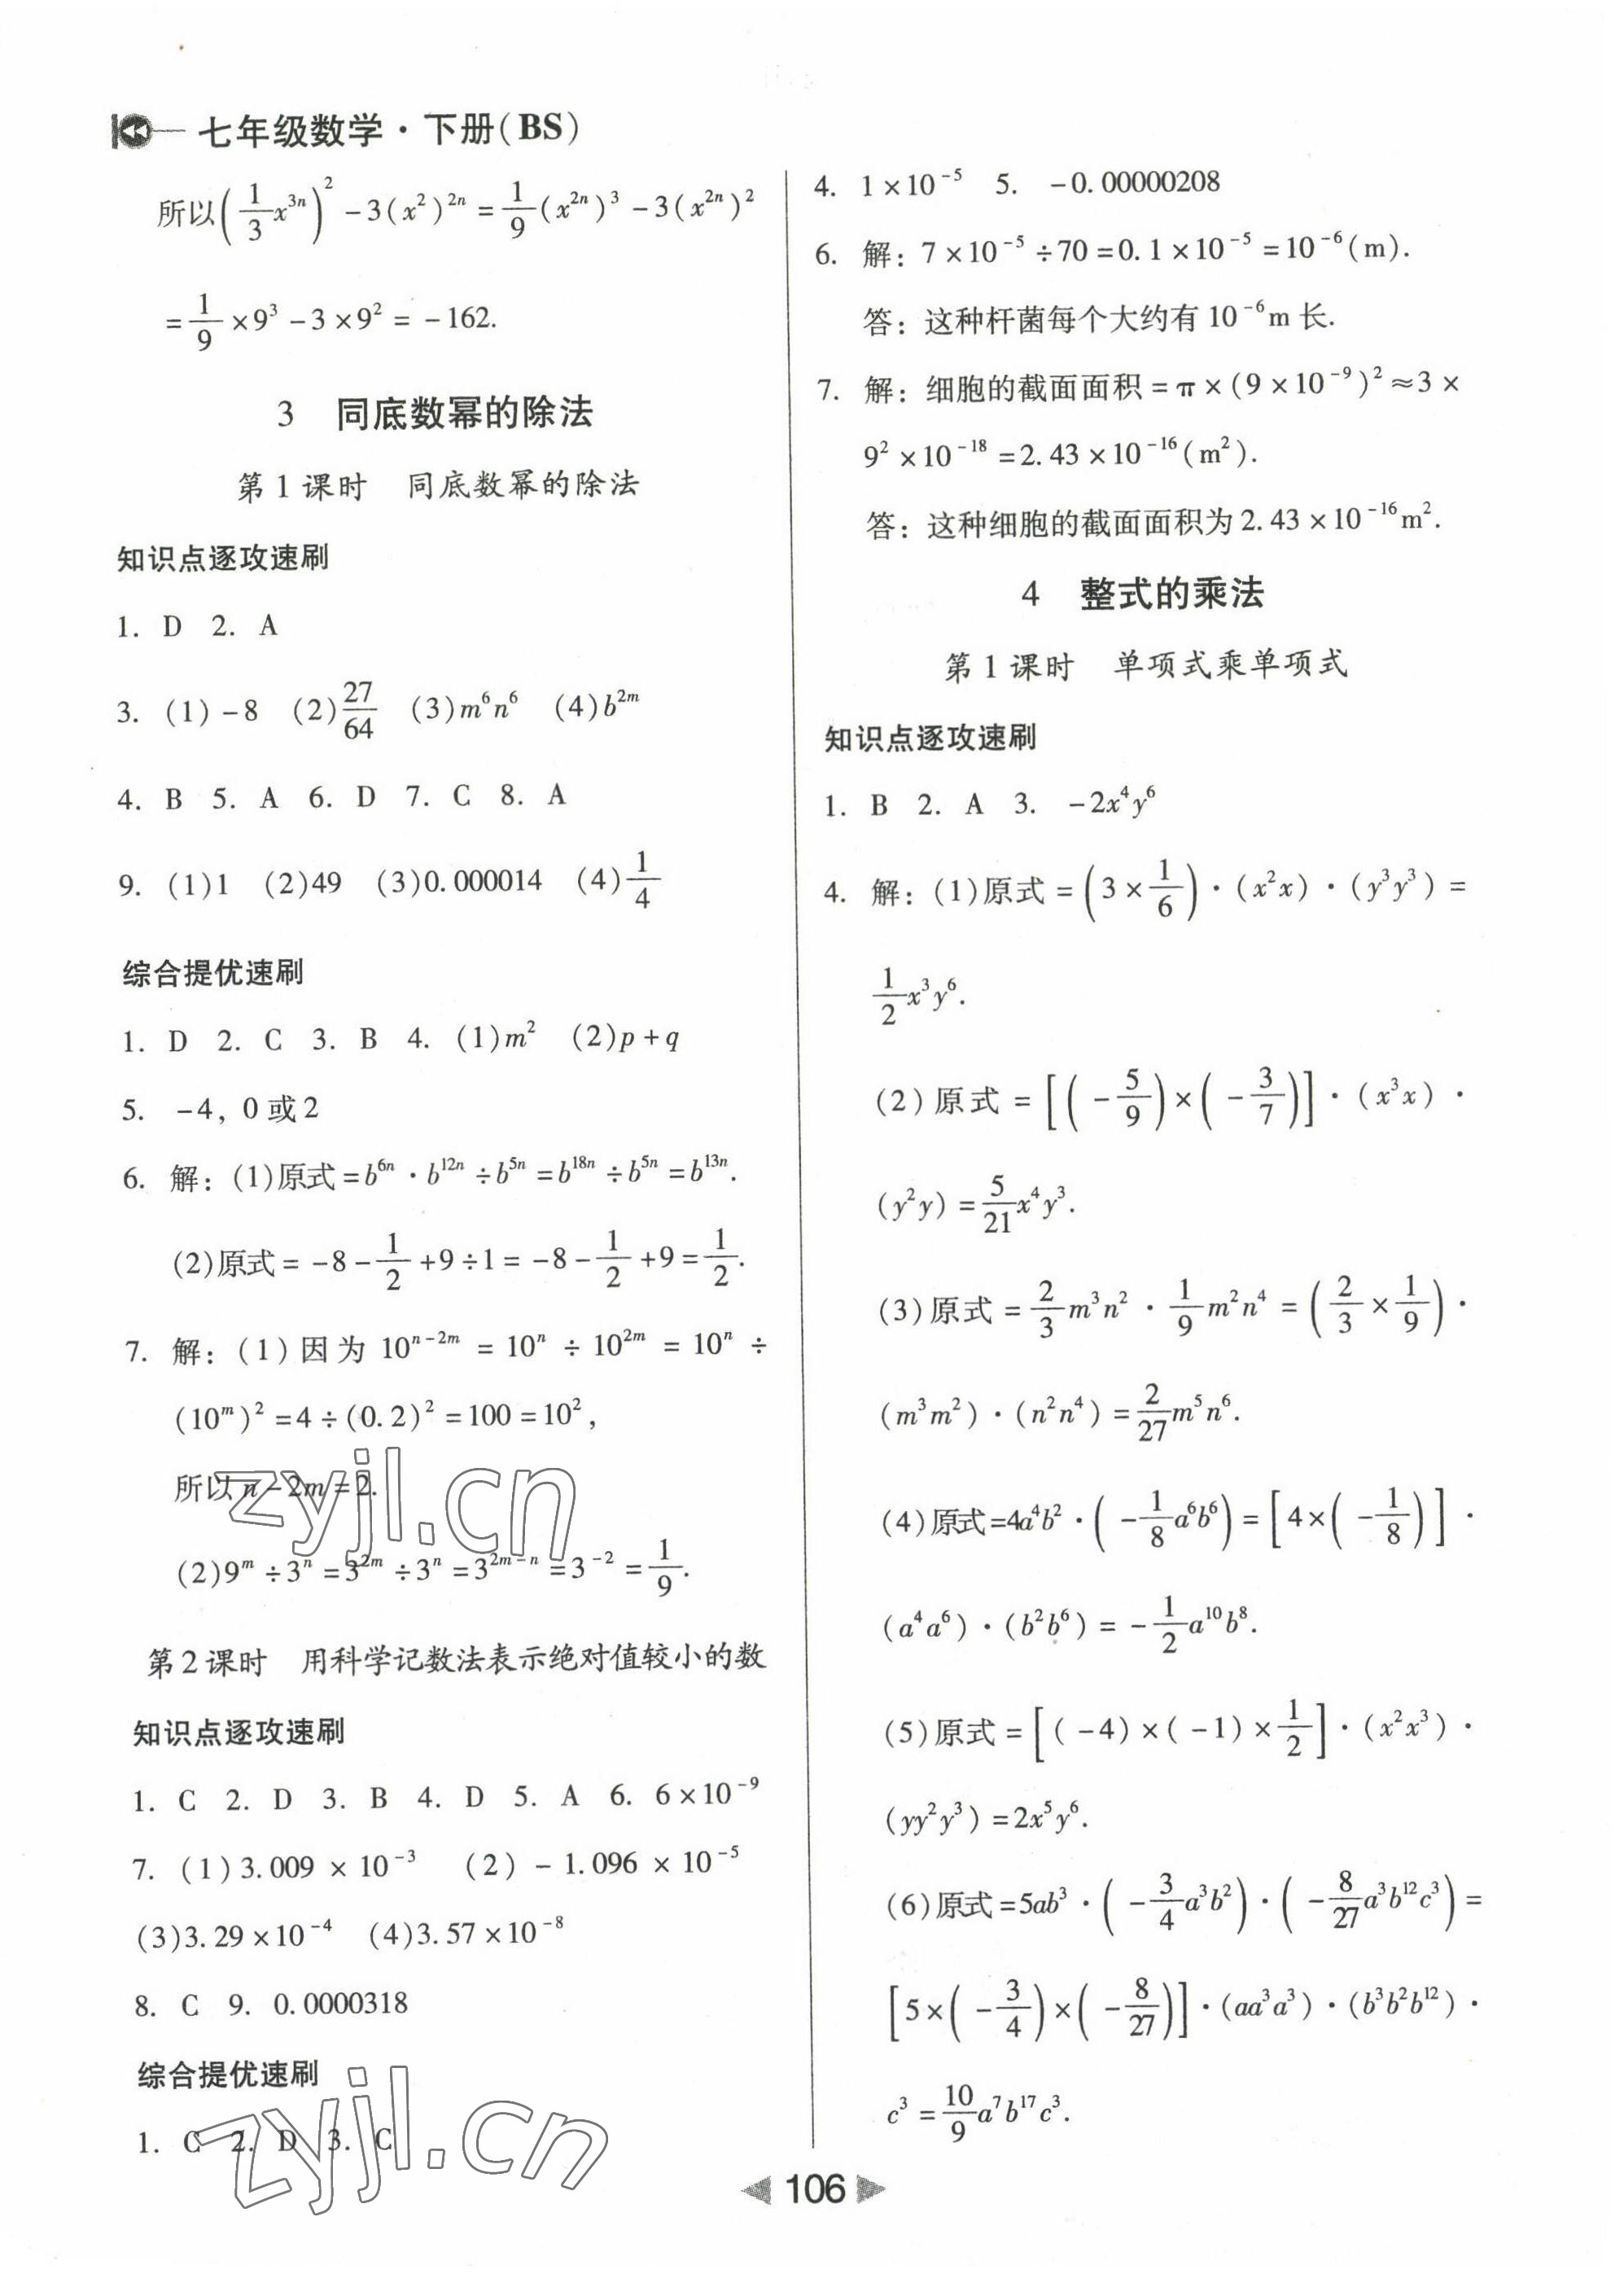 七年级数学·下册(BS)
所以(1/3 x³ⁿ)² -3(x²)²ⁿ = 1/9(x²ⁿ)³ -3(x²ⁿ)²
= 1/9 ×9³ -3×9² = -162.
3 同底数幂的除法
第1课时 同底数幂的除法
知识点逐攻速刷
1. D 2. A
3. (1)-8 (2)27/64 (3)m⁶n⁶ (4)b²ᵐ
4. B 5. A 6. D 7. C 8. A
9. (1)1 (2)49 (3)0.000014 (4)1/4
综合提优速刷
1. D 2. C 3. B 4. (1)m² (2)p+q
5. -4, 0或2
6. 解：(1)原式=b⁶ⁿ·b¹²ⁿ÷b⁵ⁿ=b¹⁸ⁿ÷b⁵ⁿ=b¹³ⁿ.
(2)原式=-8-1/2+9÷1=-8-1/2+9=1/2.
7. 解：(1)因为10ⁿ⁻²ᵐ=10ⁿ÷10²ᵐ=10ⁿ÷
(10ᵐ)²=4÷(0.2)²=100=10²,
所以n-2m=2.
(2)9ᵐ÷3ⁿ=3²ᵐ÷3ⁿ=3²ᵐ⁻ⁿ=3⁻²=1/9.
第2课时 用科学记数法表示绝对值较小的数
知识点逐攻速刷
1. C 2. D 3. B 4. D 5. A 6. 6×10⁻⁹
7. (1)3.009×10⁻³ (2)-1.096×10⁻⁵
(3)3.29×10⁻⁴ (4)3.57×10⁻⁸
8. C 9. 0.0000318
综合提优速刷
1. C 2. D 3. C
4. 1×10⁻⁵ 5. -0.00000208
6. 解：7×10⁻⁵÷70=0.1×10⁻⁵=10⁻⁶(m).
答：这种杆菌每个大约有10⁻⁶m长.
7. 解：细胞的截面面积=π×(9×10⁻⁹)²≈3×
9²×10⁻¹⁸=2.43×10⁻¹⁶(m²).
答：这种细胞的截面面积为2.43×10⁻¹⁶m².
4 整式的乘法
第1课时 单项式乘单项式
知识点逐攻速刷
1. B 2. A 3. -2x⁴y⁶
4. 解：(1)原式=(3×1/6)·(x²x)·(y³y³)=
1/2 x³y⁶.
(2)原式=[(-5/9)×(-3/7)]·(x³x)·
(y²y)=5/21 x⁴y³.
(3)原式=2/3 m³n²·1/9 m²n⁴=(2/3×1/9)·
(m³m²)·(n²n⁴)=2/27 m⁵n⁶.
(4)原式=4a⁴b²·(-1/8 a⁶b⁶)=[4×(-1/8)]·
(a⁴a⁶)·(b²b⁶)=-1/2 a¹⁰b⁸.
(5)原式=[(-4)×(-1)×1/2]·(x²x³)·
(yy²y³)=2x⁵y⁶.
(6)原式=5ab³·(-3/4 a³b²)·(-8/27 a³b¹²c³)=
[5×(-3/4)×(-8/27)]·(aa³a³)·(b³b²b¹²)·
c³=10/9 a⁷b¹⁷c³.
106
zyjl.cn
zyjl.cn